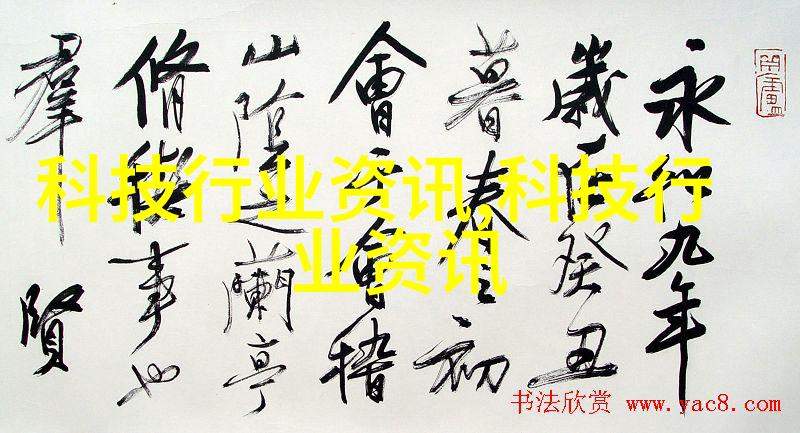 永和九年
歲在癸丑
暮春之初
會于會稽
山陰之蘭亭
脩禊事也
羣賢
科技行业资讯,科技行
业资讯
书法欣赏 www.yac8.com